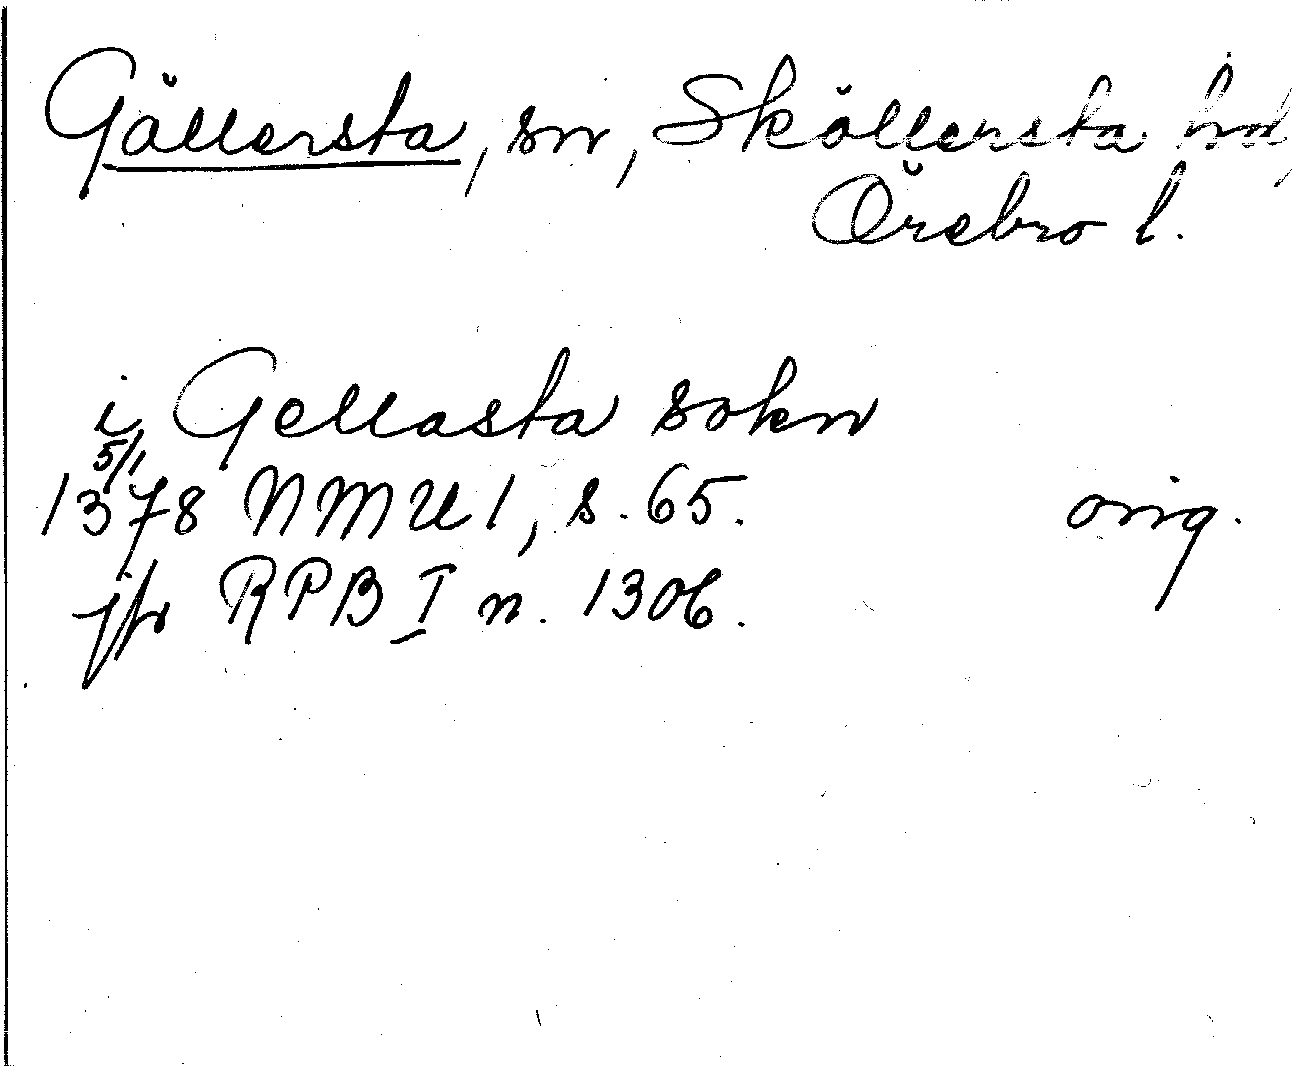 Gällersta, sn, Sköllersta hd,
Örebro l.
i Gellasta sokn
5/1
1378 NMU 1, s. 65. orig.
jfr RPB I n. 1306.